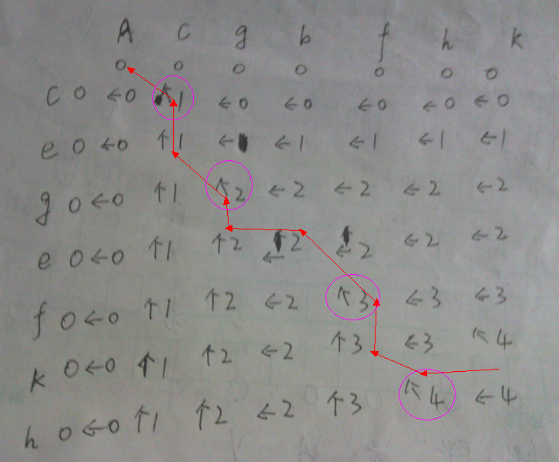 A c g b f h k
0 0 0 0 0 0 0
c 0 ←0 ↖1 ←0 ←0 ←0 ←0 ←0
e 0 ←0 ↑1 ← ←1 ←1 ←1 ←1
g 0 ←0 ↑1 ↖2 ←2 ←2 ←2 ←2
e 0 ←0 ↑1 ↑2 ←2 ←2 ←2 ←2
f 0 ←0 ↑1 ↑2 ←2 ↖3 ←3 ←3
k 0 ←0 ↑1 ↑2 ←2 ↑3 ←3 ↖4
h 0 ←0 ↑1 ↑2 ←2 ↑3 ↖4 ←4